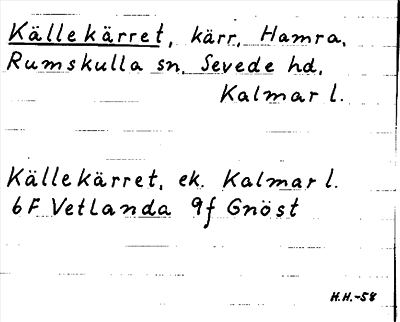 Källekärret, kärr, Hamra,
Rumskulla sn, Sevede hd,
Kalmar l.
Källekärret, ek. Kalmar l.
6F Vetlanda 9f Gnöst
H.H.-58